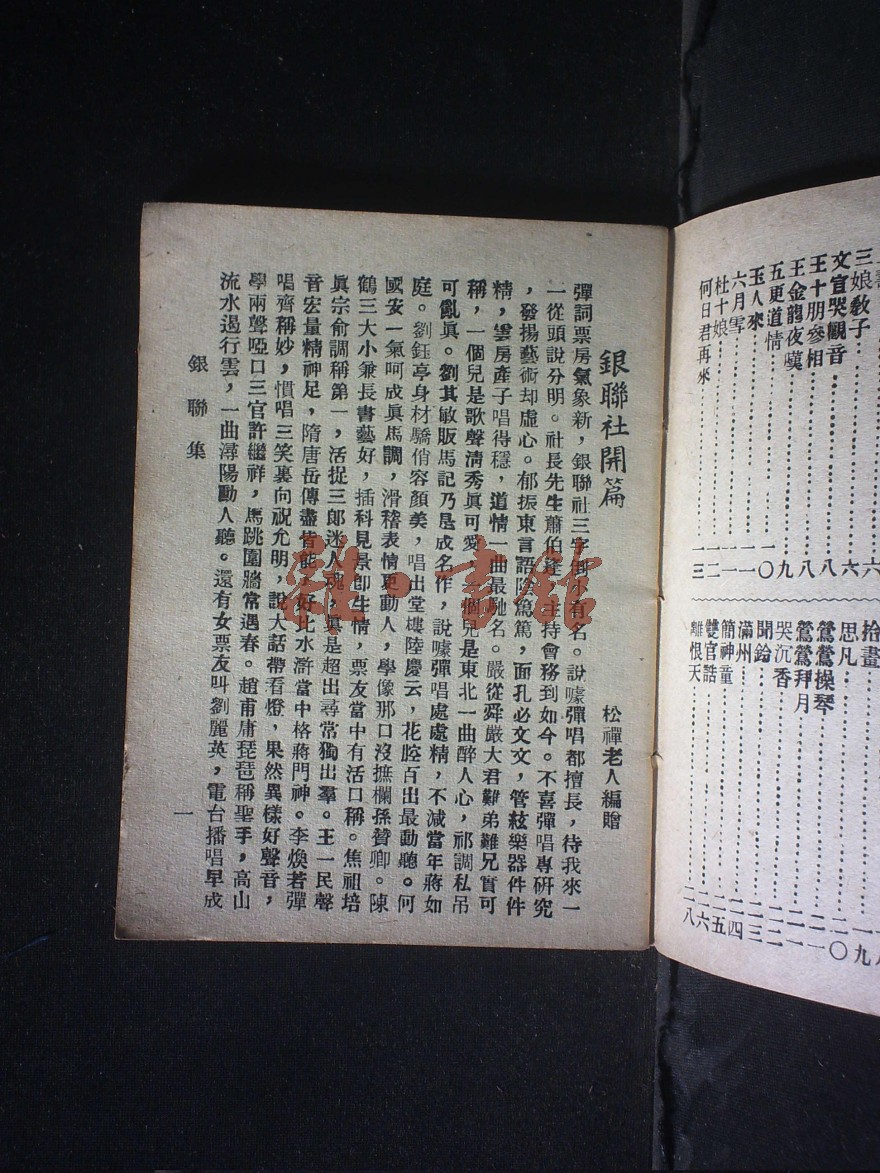 銀聯社開篇
松禪老人編贈
彈詞票房氣象新，銀聯社三字
有名。說噱彈唱都擅長，待我來一
一從頭說分明。社長先生蕭伯
主持會務到如今。不喜彈唱專研究
，發揚藝術却虛心。郁振東言語陰篤篤，面孔必文文，管絃樂器件件
精，雲房產子唱得穩，道情一曲最馳名。嚴從舜嚴大君難弟難兄實可
稱，一個兒是歌聲清秀眞可愛，一個兒是東北一曲醉人心，祁調私吊
可亂眞。劉其敏販馬記乃是成名作，說噱彈唱處處精，不減當年蔣如
庭。劉鈺亭身材驕俏容顏美，唱出堂樓陸慶云，花腔百出最動聽。何
國安一氣呵成眞馬調，滑稽表情更動人，學像那口沒撫欄孫贊卿。陳
鶴三大小兼長書藝好，插科見景卽生情，票友當中有活口稱。焦祖培
眞宗俞調稱第一，活捉三郎迷人魂，眞是超出尋常獨出羣。王一民聲
音宏量精神足，隋唐岳傳盡皆能，好比水滸當中格蔣門神。李煥若彈
唱齊稱妙，慣唱三笑裏向祝允明，說大話帶看燈，果然異樣好聲音，
學兩聲啞口三官許繼祥，馬跳圍牆常遇春。趙甫庸琵琶稱聖手，高山
流水遏行雲，一曲潯陽動人聽。還有女票友叫劉麗英，電台播唱早成
銀聯集
一
三娘教子
文宣哭觀音
王十朋參相
王金龍夜嘆
五更道情
玉人來
六月雪
杜十娘
何日君再來
拾畫
思凡
鶯鶯操琴
鶯鶯拜月
哭沉香
聞鈴
滿州
簡神童
雙官誥
離恨天
雜·書館